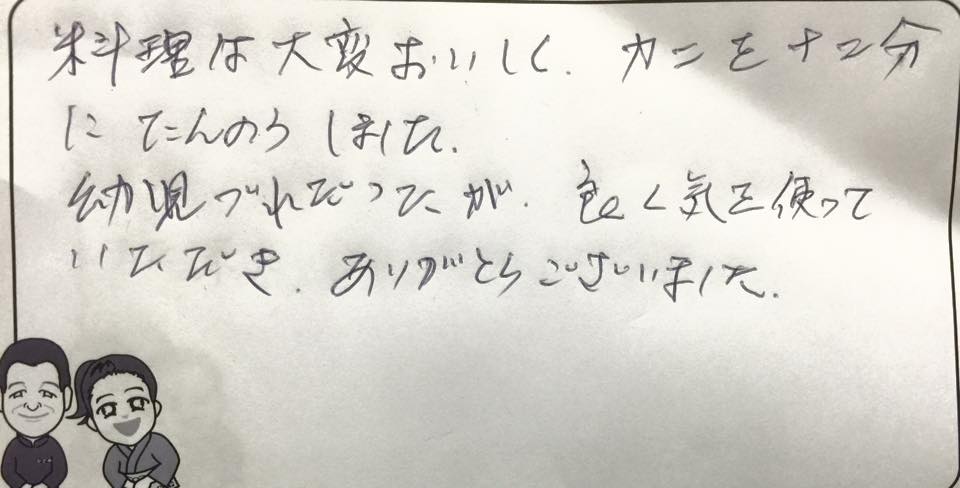 料理は大変おいしく、カニを十二分
に たんのう しました。
幼児づれだったが、良く気を使って
いただき、ありがとうございました。